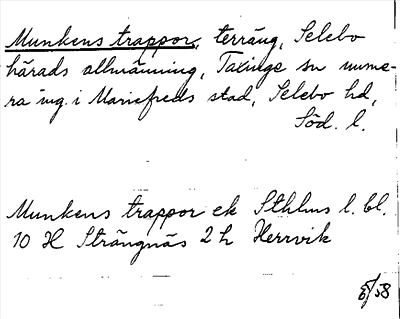 Munkens trappor, terräng, Selebo
härads allmänning, Taxinge sn nume-
ra ing. i Mariefreds stad, Selebo hd,
Söd. l.
Munkens trappor ek Sthlms l. bl.
10 H Strängnäs 2 h Herrvik
/58